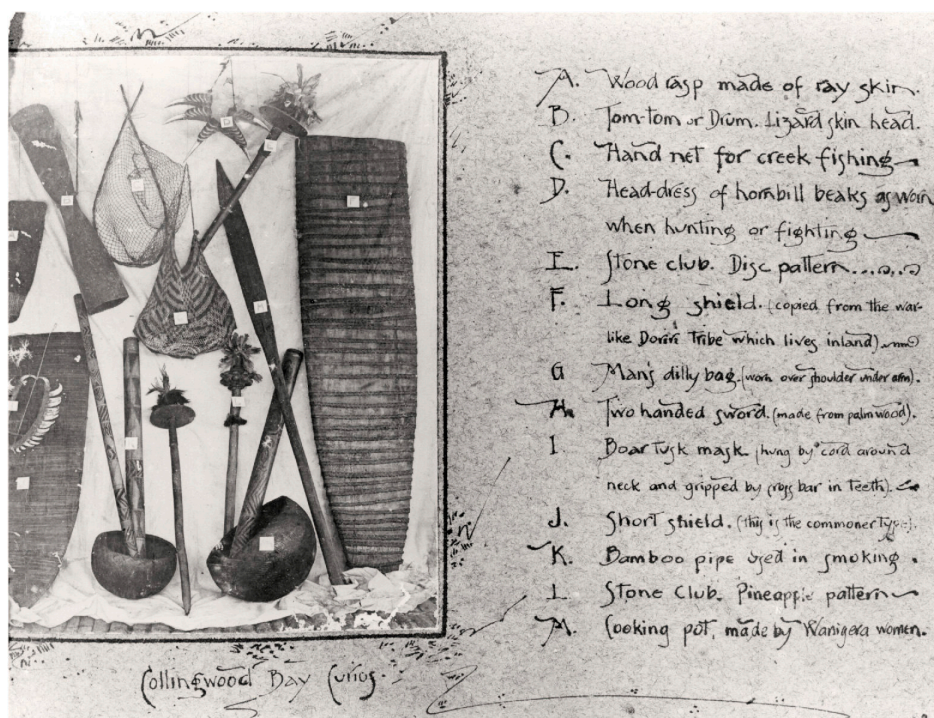 A. Wood rasp made of ray skin.
B. Tom-tom or Drum. Lizard skin head.
C. Hand net for creek fishing
D. Head-dress of hornbill beaks as worn
when hunting or fighting
E. Stone club. Disc pattern....
F. Long shield. (copied from the war-
like Doriri Tribe which lives inland)
G Man's dilly bag. (worn over shoulder under arm).
H. Two handed sword. (made from palm wood).
I. Boar Tusk mask. (hung by cord around
neck and gripped by cross bar in Teeth).
J. Short shield. (this is the commoner Type).
K. Bamboo pipe used in smoking.
L. Stone Club. Pineapple pattern
M. Cooking pot, made by Wanigera women.
Collingwood Bay Curios.